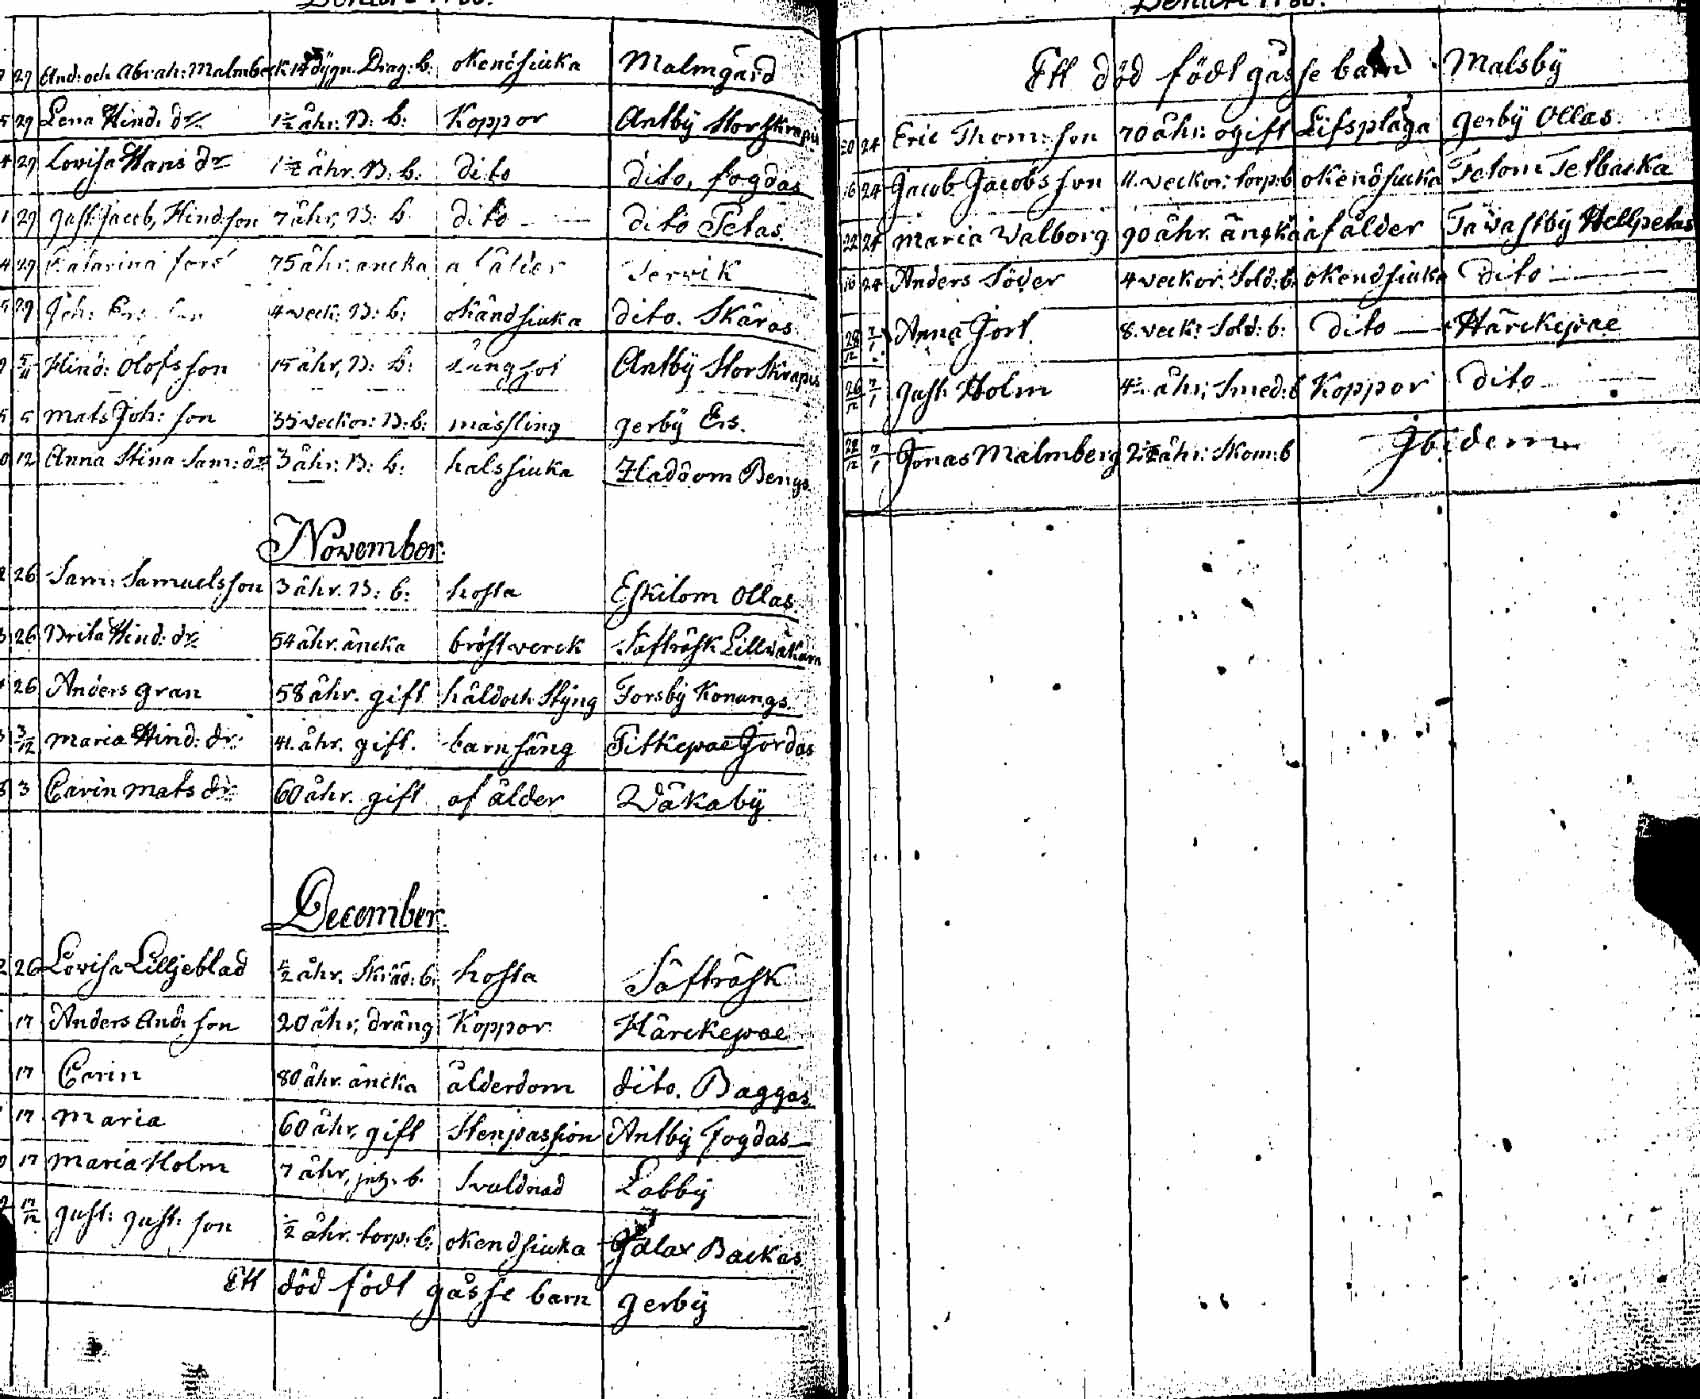 27 And: och Abrah: Malmberk 14 dygn. Drag: b: okendsiuka Malmgård
29 Lena Hind: dr 1½ åhr: B: b: Koppor Antby Storskrapus
29 Lovisa Hans dr 1½ åhr. B: b: dito dito, fogdas
29 Gust: Jacob, Hind: son 7 åhr, B: b: dito dito Petas.
29 Katarina fors 75 åhr. ancka a ålder Servik
29 Joh: Ers: son 4 veck: B: b: okändsiuka dito. Skåras
5/11 Hind: Olofsson 15 åhr, B: b: Antby Storskrapus
5 Mats Joh: son 35 veckor: B: b: mässling gerby Ers.
12 Anna Stina Sam: dr 3 åhr: B: b: halssiuka Haddom Bengs
November.
26 Sam: Samuelsson 3 åhr. B: b: hosta Eskilom Ollas.
26 Brita Hind: dr 54 åhr. äncka bröstverck Säfträsk
26 Anders gran 58 åhr. gift håldoch styng Forsby Konungs.
3/12 Maria Hind: dr: 41. åhr. gift. barnsäng Pitkepae Jordas
3 Carin Mats dr 60 åhr. gift af ålder Wåkaby
December.
26 Lovisa Lilljeblad ½ åhr. Skräd: b: hosta Säfträsk
17 Anders And: son 20 åhr, dräng Koppor Härckepae
17 Carin 80 åhr. äncka ålderdom dito. Baggas
17 Maria 60 åhr, gift Stenpassion Antby Fogdas
17 Maria Holm 7 åhr, b. Svuldnad Labby
17/12 Gust: Gust: son ½ åhr. torp: b: okendsiuka Backas
Ett död födt gåsse barn gerby
Ett död födt gåsse barn Malsby
20 24 Eric Thom: son 70 åhr: ogift Lifsplåga gerby Ollas.
16 24 Jacob Jacobsson 11. veckor: torp: b okendsiucka
22 24 Maria Walborg 90 åhr. äncka af ålder Tawastby Hellpetas
16 24 Anders Söder 4 veckor: Sold: b: okendsiuka dito
28/12 7/1 Anna Fort. 8. veck: Sold: b: dito Härckepae
26/12 7/1 Gust: Holm 4½ åhr; Smed: b Koppor dito
28/12 7/1 Jonas Malmberg 2½ åhr: Skom: b Ibidem